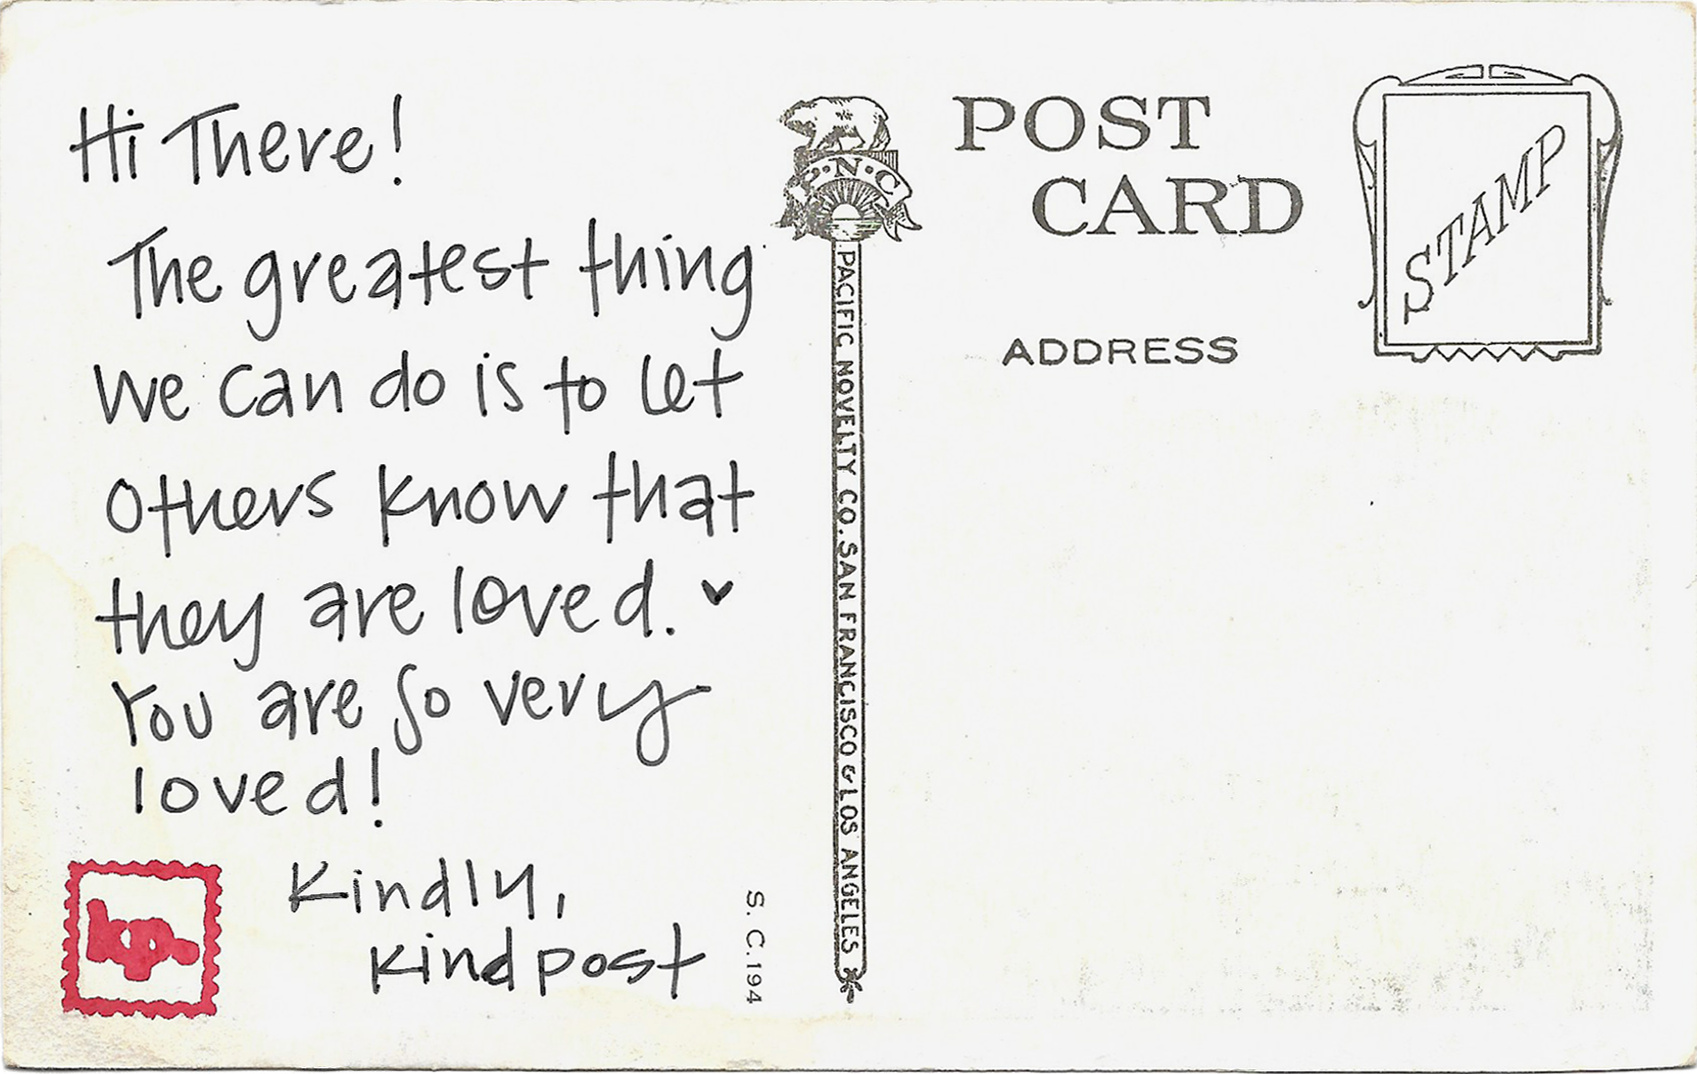 Hi There!
The greatest thing
we can do is to let
others know that
they are loved. ♥
You are so very
loved!
Kindly,
Kindpost
kp.
S. C. 194
P·N·C
PACIFIC NOVELTY CO. SAN FRANCISCO & LOS ANGELES
POST
CARD
ADDRESS
STAMP